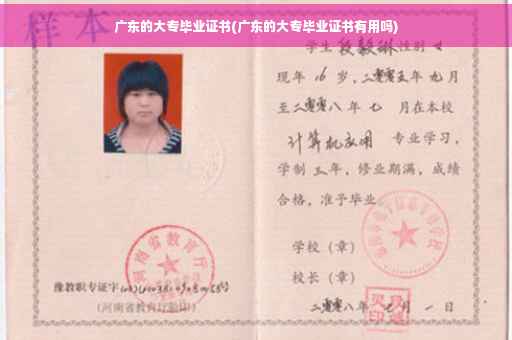 广东的大专毕业证书(广东的大专毕业证书有用吗)
样本
学生 段毅琳 性别 女
现年 16 岁，二零零五年 九月
至二零零八年 七 月在本校
计算机应用 专业学习，
学制 三 年，修业期满，成绩
合格，准予毕业
学校（章）
校长（章）
二零零八年 七 月 一 日
河南省教育厅
豫教职专证字
(河南省教育厅验印)